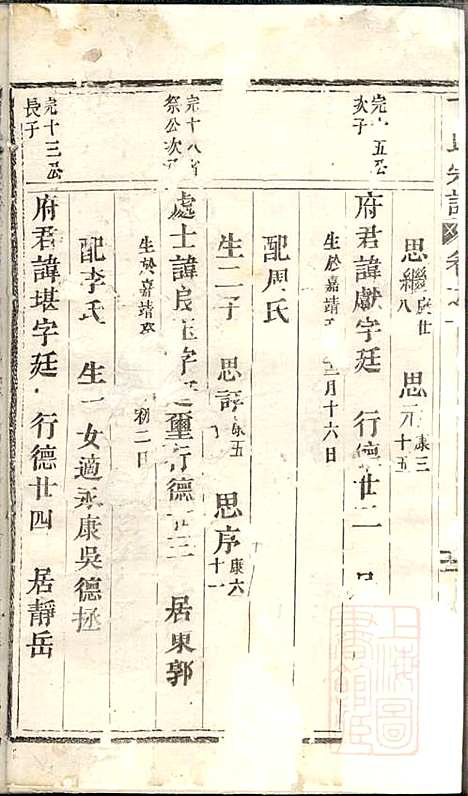 宗譜
卷之
思繼 八 思 康三 十五
完十五公 次子
府君諱獻字廷 行德廿二
生於嘉靖 月十六日
配周氏
生二子 思 五 思序 康六 十一
完十八 祭公次子
處士諱良 字 璽行德廿三 居東郭
生於嘉靖 初二日
配李氏 生一女適永康吳德拯
完十三公 長子
府君諱堪字廷 行德廿四 居靜岳
上海圖書館藏